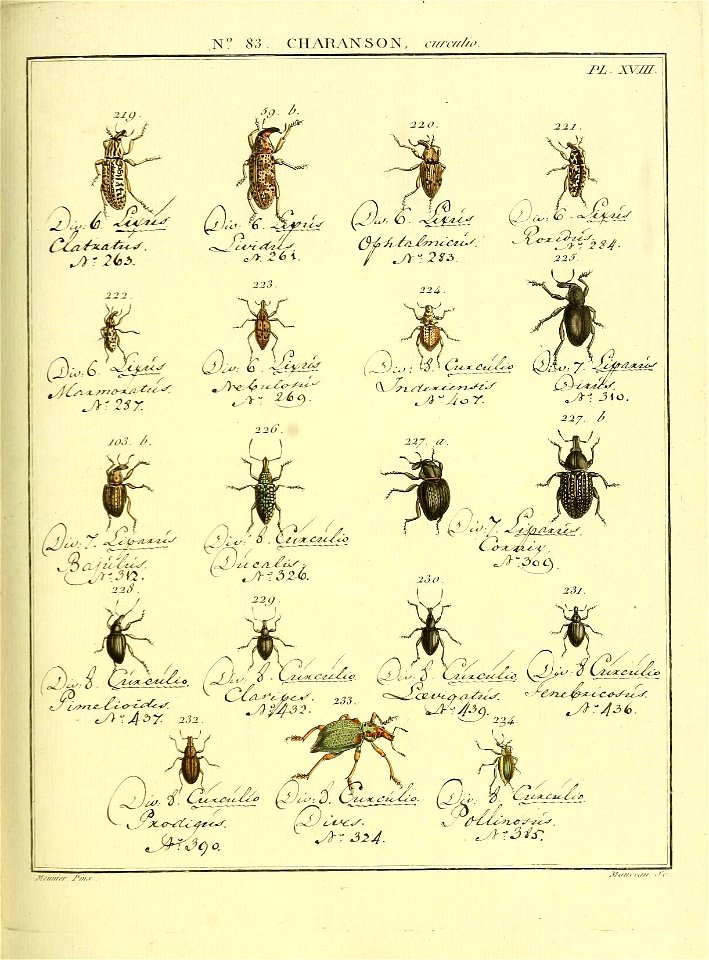 Nº. 83. CHARANSON, curculio.
PL. XVIII.
219.
Div. 6. Lixus
Clatratus.
Nº. 263.
59. b.
Div. 6. Lixus
Lividus.
N. 261.
220.
Div. 6. Lixus
Ophtalmicus.
Nº. 283.
221.
Div. 6. Lixus
Roridus.
Nº. 284.
222.
Div. 6. Lixus
Marmoratus.
Nº. 287.
223.
Div. 6. Lixus
Nebulosus
Nº. 269.
224.
Div. 8. Curculio
Inderiensis
Nº. 407.
225.
Div. 7. Liparus
Dirus.
Nº. 310.
103. b.
Div. 7. Liparus
Bajulus.
Nº. 312.
226.
Div. 8. Curculio
Ducalis.
Nº. 326.
227. a.
227. b.
Div. 7. Liparus.
Cornix.
Nº. 309.
228.
Div. 8. Curculio
Pimelioides.
Nº. 437.
229.
Div. 8. Curculio
Claripes.
Nº. 432.
230.
Div. 8. Curculio
Lœvigatus.
Nº. 439.
231.
Div. 8 Curculio
Tenebricosus.
Nº. 436.
232.
Div. 8. Curculio
Prodigus.
Nº. 390.
233.
Div. 8. Curculio.
Dives.
Nº. 324.
234.
Div. 8. Curculio.
Pollinosus.
Nº. 385.
Meunier Pinx.
Manceau, Sc.